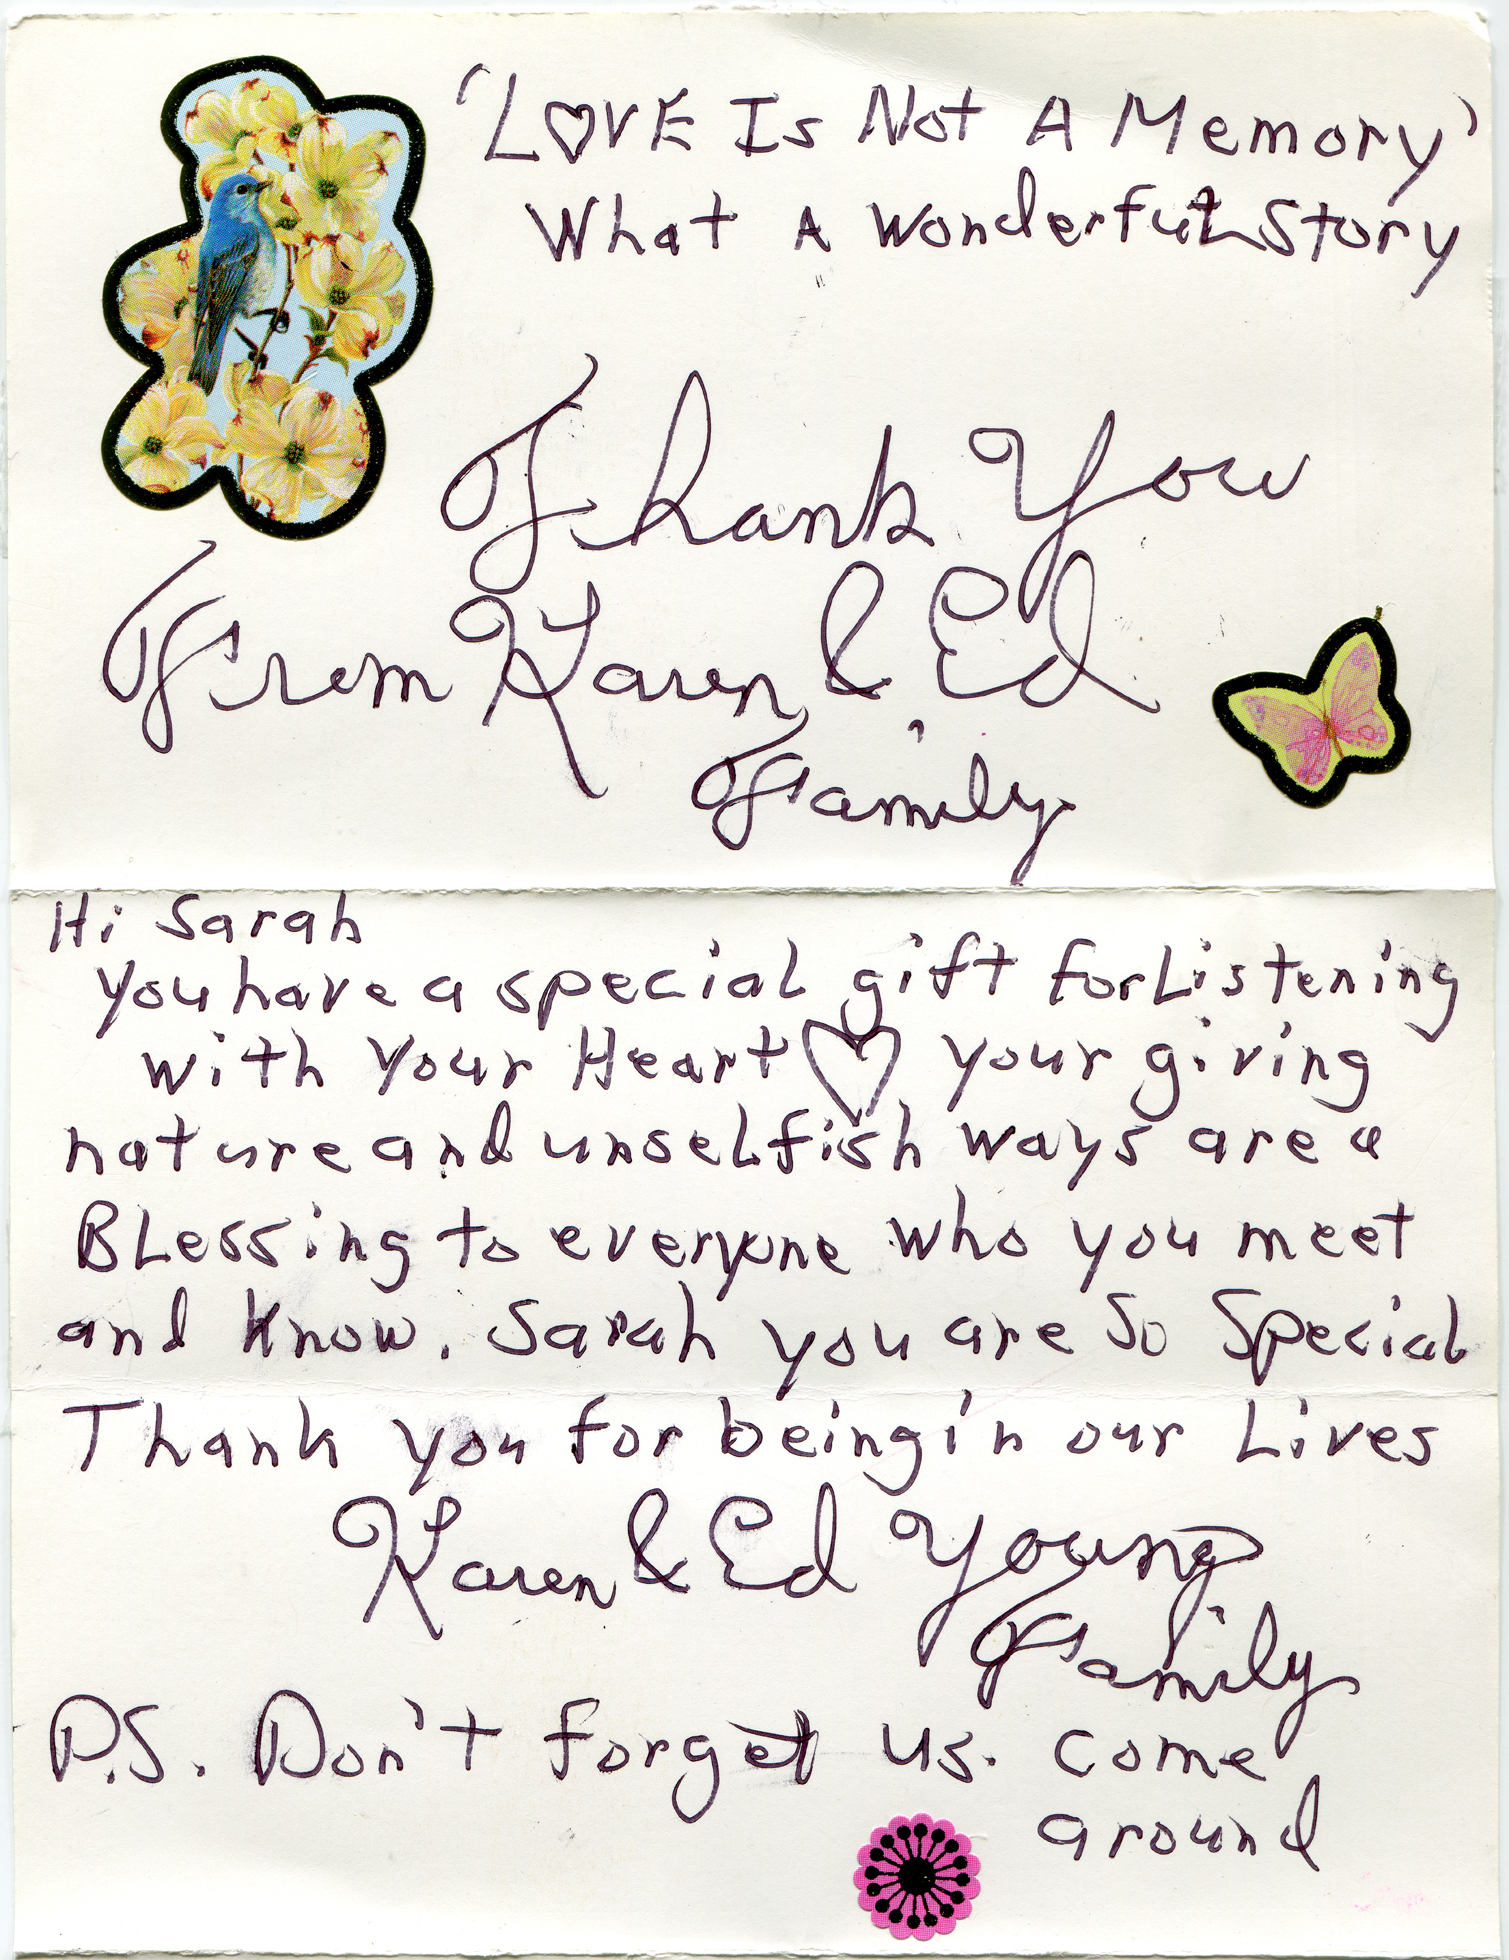 'LOVE Is Not A Memory'
What A Wonderful Story
Thank You
From Karen & Ed
Family
Hi Sarah
You have a special gift for Listening
with Your Heart ♡ your giving
nature and unselfish ways are a
Blessing to everyone who you meet
and know. Sarah you are So Special
Thank you for being in our Lives
Karen & Ed Young
Family
P.S. Don't forget us. come
around